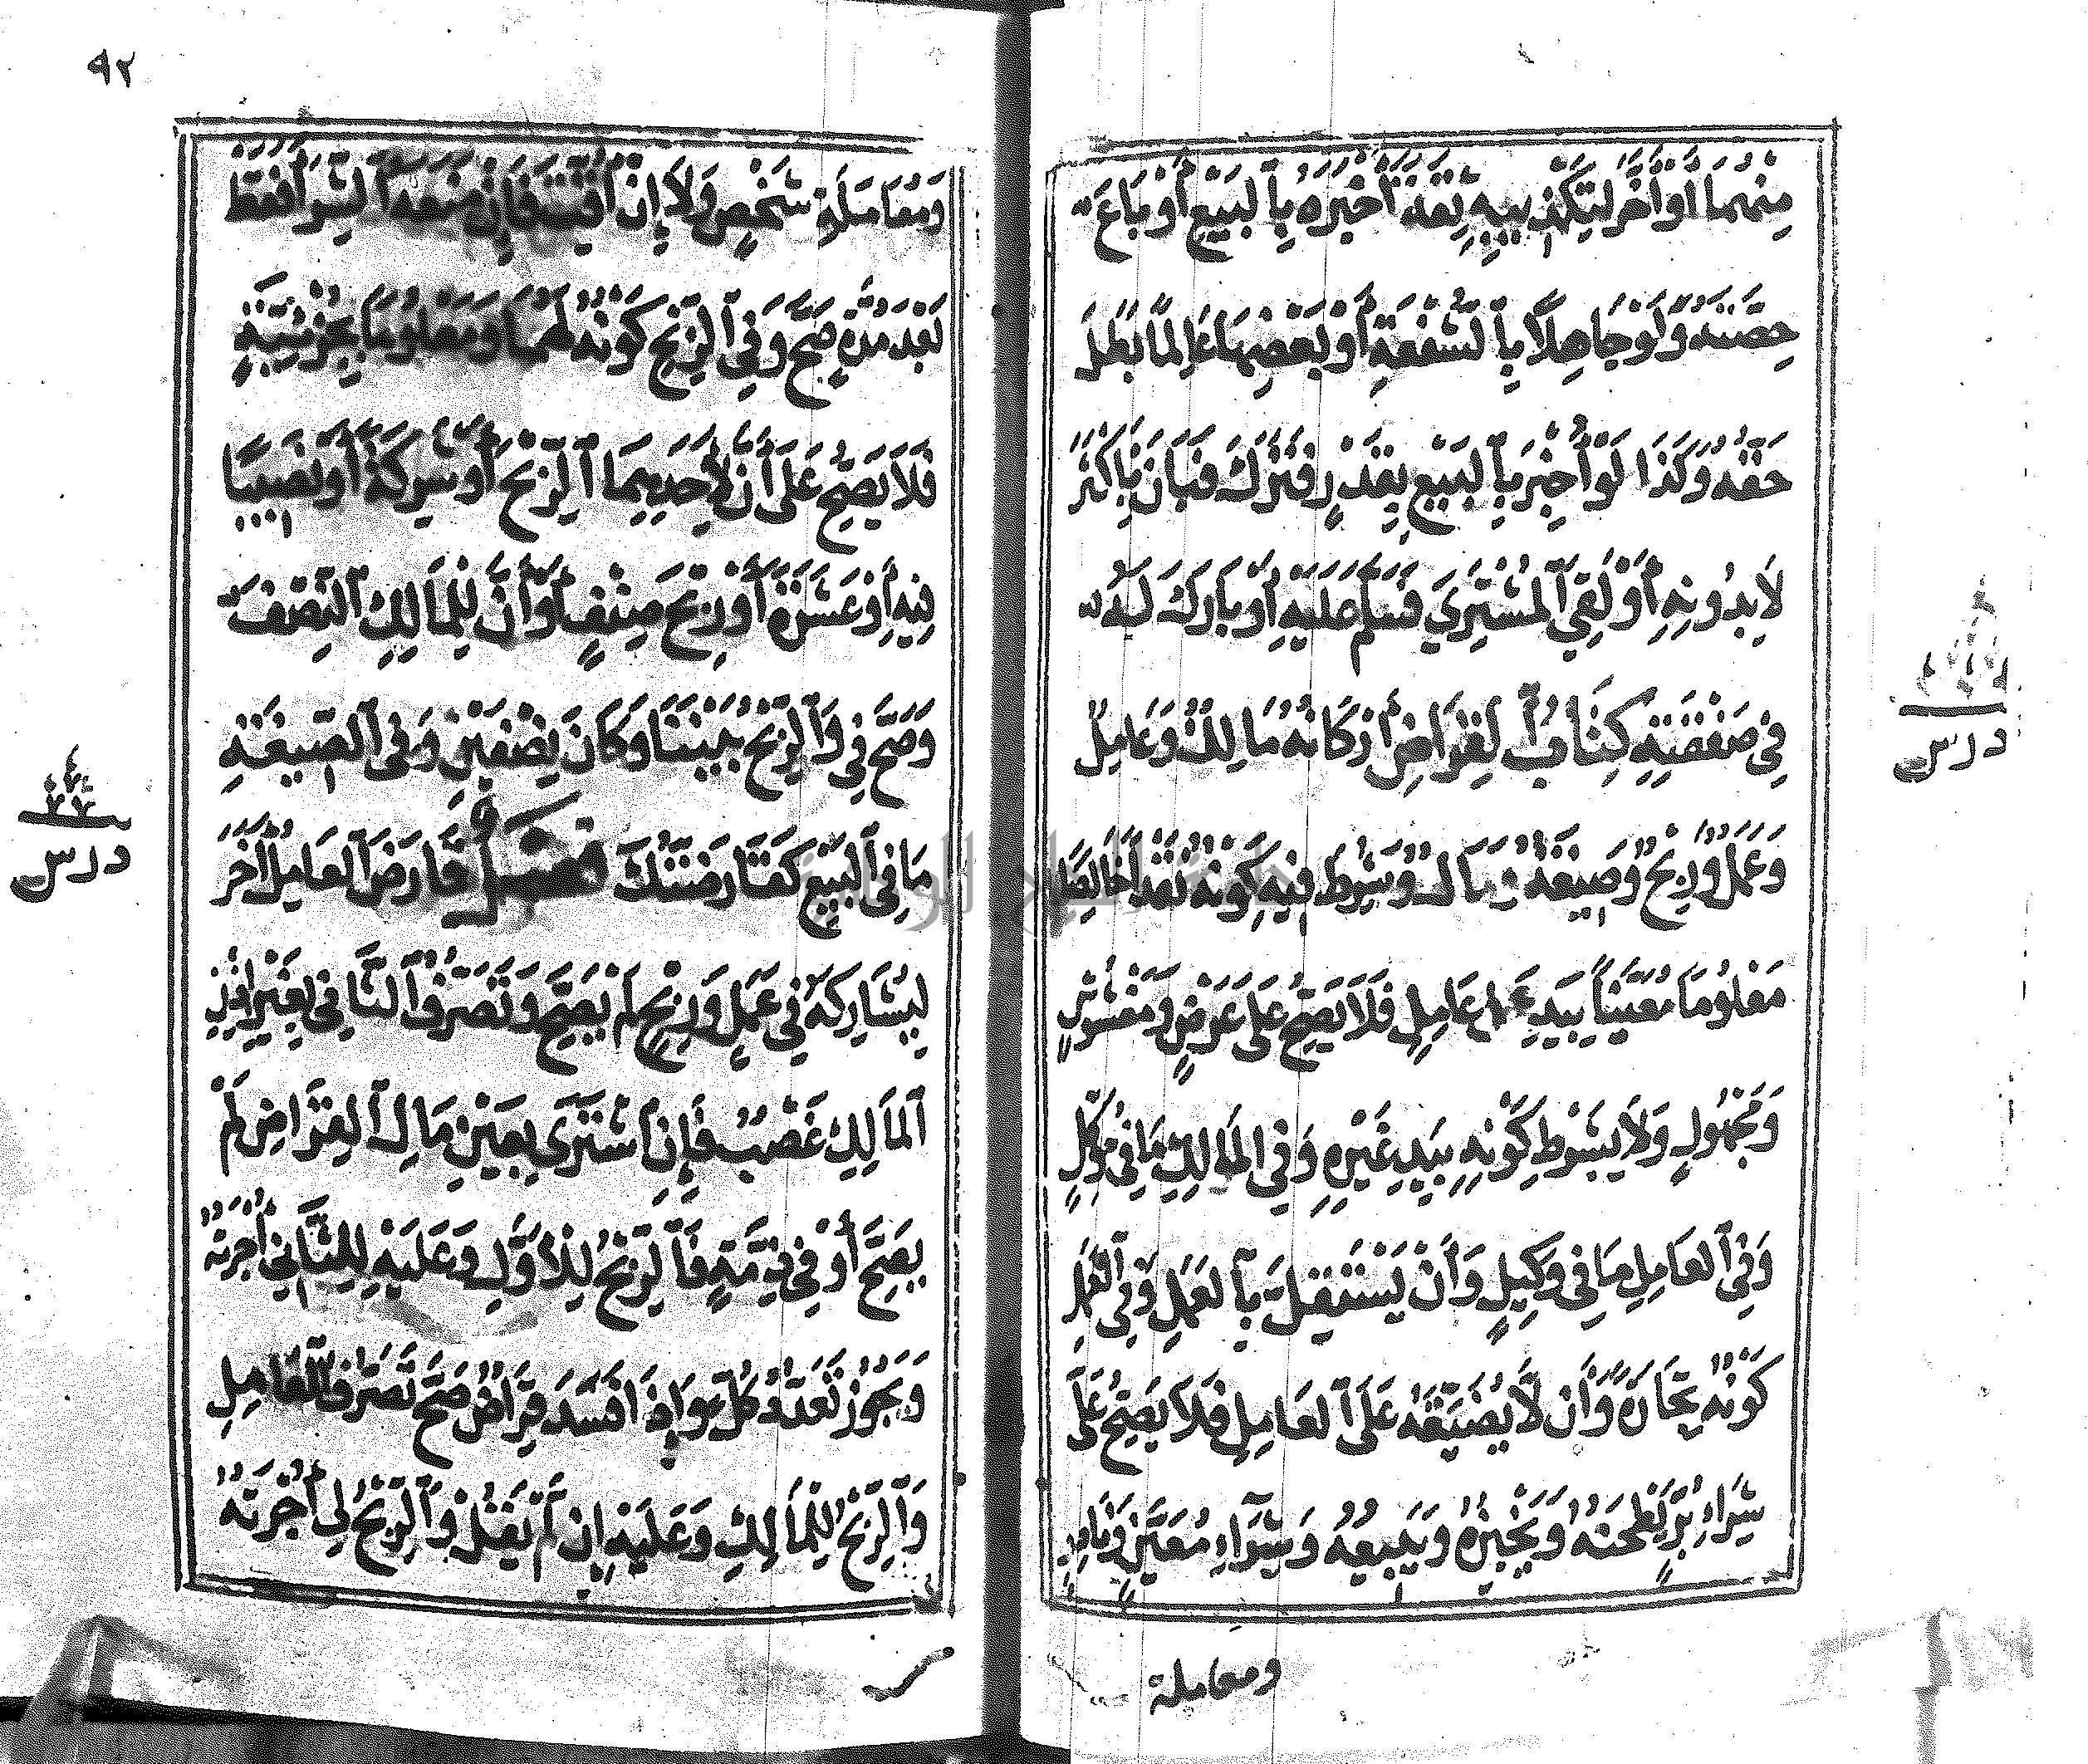 مِنْهُمَا أَوْ أَخَّرَ لِتَكْذِيبِهِ ثِقَةً أَخْبَرَهُ بِٱلْبَيْعِ أَوْ بَاعَ
حِصَّتَهُ وَلَوْ جَاهِلًا بِٱلشُّفْعَةِ أَوْ بَعْضِهَا عَالِمًا بَطَلَ
حَقُّهُ وَكَذَا لَوْ أُخْبِرَ بِٱلْبَيْعِ بِقَدْرٍ فَتَرَكَ فَبَانَ بِأَكْثَرَ
لَا بِدُونِهِ أَوْ لَقِيَ ٱلْمُشْتَرِيَ فَسَلَّمَ عَلَيْهِ أَوْ بَارَكَ لَهُ
فِي صَفْقَتِهِ كِتَابُ ٱلْقِرَاضِ أَرْكَانُهُ مَالِكٌ وَعَامِلٌ
وَعَمَلٌ وَرِبْحٌ وَصِيغَةٌ وَمَالٌ وَشُرِطَ فِيهِ كَوْنُهُ نَقْدًا خَالِصًا
مَعْلُومًا مُعَيَّنًا بِيَدِ عَامِلٍ فَلَا يَصِحُّ عَلَى عَرْضٍ وَمَغْشُوشٍ
وَمَجْهُولٍ وَلَا بِشَرْطِ كَوْنِهِ بِيَدِ غَيْرِهِ وَفِي ٱلْمَالِكِ مَا فِي مُوَكِّلٍ
وَفِي ٱلْعَامِلِ مَا فِي وَكِيلٍ وَأَنْ يَسْتَقِلَّ بِٱلْعَمَلِ وَفِي ٱلْعَمَلِ
كَوْنُهُ تِجَارَةً وَأَنْ لَا يُضَيِّقَهُ عَلَى ٱلْعَامِلِ فَلَا يَصِحُّ عَلَى
شِرَاءِ بُرٍّ يَطْحَنُهُ وَيَخْبِزُهُ وَيَبِيعُهُ وَشِرَاءِ مُعَيَّنٍ وَنَادِرٍ
ومعاملة
درس
٩٢
وَمُعَامَلَةِ شَخْصٍ وَلَا إِنْ أَقَّتَ فَإِنْ مَنَعَهُ ٱلشِّرَا فَقَطْ
بَعْدَ مُدَّةٍ صَحَّ وَفِي ٱلرِّبْحِ كَوْنُهُ لَهُمَا وَمَعْلُومًا بِجُزْئِيَّةٍ
فَلَا يَصِحُّ عَلَى أَنَّ لِأَحَدِهِمَا ٱلرِّبْحَ أَوْ شَرِكَةً أَوْ نَصِيبًا
فِيهِ أَوْ عَشَرَةً أَوْ رِبْحَ صِنْفٍ أَوْ أَنَّ لِلْمَالِكِ ٱلنِّصْفَ
وَصَحَّ فِي وَٱلرِّبْحُ بَيْنَنَا وَكَانَ نِصْفَيْنِ وَفِي ٱلصِّيغَةِ
مَا فِي ٱلْبَيْعِ كَقَارَضْتُكَ فَصْلٌ قَارَضَ ٱلْعَامِلُ آخَرَ
لِيُشَارِكَهُ فِي عَمَلٍ وَرِبْحٍ لَمْ يَصِحَّ وَتَصَرُّفُ ٱلثَّانِي بِغَيْرِ إِذْنِ
ٱلْمَالِكِ غَصْبٌ فَإِنِ ٱشْتَرَى بِعَيْنِ مَالِ ٱلْقِرَاضِ لَمْ
يَصِحَّ أَوْ فِي ذِمَّةٍ فَٱلرِّبْحُ لِلْأَوَّلِ وَعَلَيْهِ لِلثَّانِي أُجْرَتُهُ
وَيَجُوزُ تَعَدُّدُ كُلٍّ وَإِذَا فَسَدَ قِرَاضٌ صَحَّ تَصَرُّفُ ٱلْعَامِلِ
وَٱلرِّبْحُ لِلْمَالِكِ وَعَلَيْهِ إِنْ لَمْ يَقُلْ وَٱلرِّبْحُ لِي أُجْرَتُهُ
درس